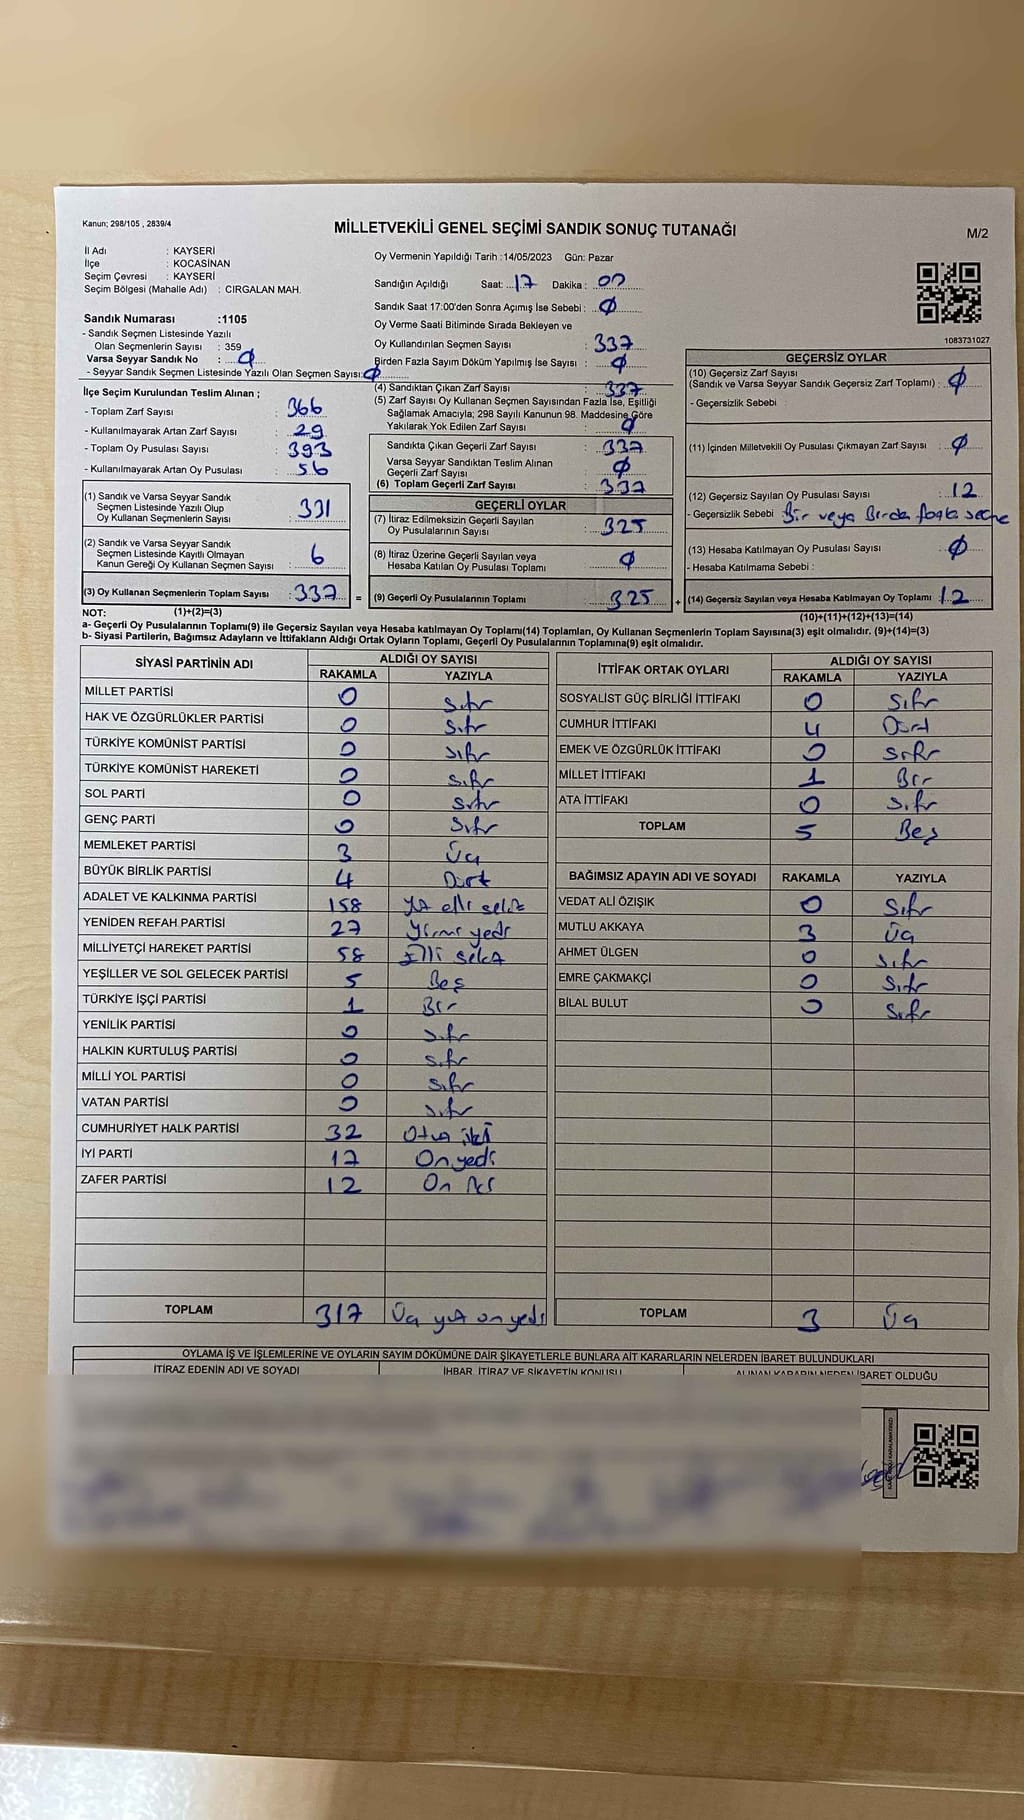 Kanun; 298/105 , 2839/4
MİLLETVEKİLİ GENEL SEÇİMİ SANDIK SONUÇ TUTANAĞI
M/2
İl Adı : KAYSERİ
İlçe : KOCASİNAN
Seçim Çevresi : KAYSERİ
Seçim Bölgesi (Mahalle Adı) : CIRGALAN MAH.
Sandık Numarası :1105
- Sandık Seçmen Listesinde Yazılı
Olan Seçmenlerin Sayısı : 359
Varsa Seyyar Sandık No : 0
- Seyyar Sandık Seçmen Listesinde Yazılı Olan Seçmen Sayısı: 0
İlçe Seçim Kurulundan Teslim Alınan ;
- Toplam Zarf Sayısı : 366
- Kullanılmayarak Artan Zarf Sayısı : 29
- Toplam Oy Pusulası Sayısı : 393
- Kullanılmayarak Artan Oy Pusulası : 56
(1) Sandık ve Varsa Seyyar Sandık
Seçmen Listesinde Yazılı Olup
Oy Kullanan Seçmenlerin Sayısı : 331
(2) Sandık ve Varsa Seyyar Sandık
Seçmen Listesinde Kayıtlı Olmayan
Kanun Gereği Oy Kullanan Seçmen Sayısı : 6
(3) Oy Kullanan Seçmenlerin Toplam Sayısı : 337 =
Oy Vermenin Yapıldığı Tarih :14/05/2023 Gün: Pazar
Sandığın Açıldığı Saat: 17 Dakika : 00
Sandık Saat 17:00'den Sonra Açımış İse Sebebi : 0
Oy Verme Saati Bitiminde Sırada Bekleyen ve
Oy Kullandırılan Seçmen Sayısı : 337
Birden Fazla Sayım Döküm Yapılmış İse Sayısı : 0
(4) Sandıktan Çıkan Zarf Sayısı : 337
(5) Zarf Sayısı Oy Kullanan Seçmen Sayısından Fazla İse, Eşitliği
Sağlamak Amacıyla; 298 Sayılı Kanunun 98. Maddesine Göre
Yakılarak Yok Edilen Zarf Sayısı : 0
Sandıkta Çıkan Geçerli Zarf Sayısı : 337
Varsa Seyyar Sandıktan Teslim Alınan
Geçerli Zarf Sayısı : 0
(6) Toplam Geçerli Zarf Sayısı : 337
GEÇERLİ OYLAR
(7) İtiraz Edilmeksizin Geçerli Sayılan
Oy Pusulalarının Sayısı : 325
(8) İtiraz Üzerine Geçerli Sayılan veya
Hesaba Katılan Oy Pusulası Toplamı : 0
(9) Geçerli Oy Pusulalarının Toplamı : 325 +
1083731027
GEÇERSİZ OYLAR
(10) Geçersiz Zarf Sayısı
(Sandık ve Varsa Seyyar Sandık Geçersiz Zarf Toplamı) : 0
- Geçersizlik Sebebi :
(11) İçinden Milletvekili Oy Pusulası Çıkmayan Zarf Sayısı : 0
(12) Geçersiz Sayılan Oy Pusulası Sayısı : 12
- Geçersizlik Sebebi : Bir veya Birden fazla seçme
(13) Hesaba Katılmayan Oy Pusulası Sayısı : 0
- Hesaba Katılmama Sebebi :
(14) Geçersiz Sayılan veya Hesaba Katılmayan Oy Toplamı : 12
NOT: (1)+(2)=(3) (10)+(11)+(12)+(13)=(14)
a- Geçerli Oy Pusulalarının Toplamı(9) ile Geçersiz Sayılan veya Hesaba katılmayan Oy Toplamı(14) Toplamları, Oy Kullanan Seçmenlerin Toplam Sayısına(3) eşit olmalıdır. (9)+(14)=(3)
b- Siyasi Partilerin, Bağımsız Adayların ve İttifakların Aldığı Ortak Oyların Toplamı, Geçerli Oy Pusulalarının Toplamına(9) eşit olmalıdır.
SİYASİ PARTİNİN ADI ALDIĞI OY SAYISI
RAKAMLA YAZIYLA
MİLLET PARTİSİ 0 Sıfır
HAK VE ÖZGÜRLÜKLER PARTİSİ 0 Sıfır
TÜRKİYE KOMÜNİST PARTİSİ 0 Sıfır
TÜRKİYE KOMÜNİST HAREKETİ 0 Sıfır
SOL PARTİ 0 Sıfır
GENÇ PARTİ 0 Sıfır
MEMLEKET PARTİSİ 3 Üç
BÜYÜK BİRLİK PARTİSİ 4 Dört
ADALET VE KALKINMA PARTİSİ 158 Yüz elli sekiz
YENİDEN REFAH PARTİSİ 27 Yirmi yedi
MİLLİYETÇİ HAREKET PARTİSİ 58 Elli sekiz
YEŞİLLER VE SOL GELECEK PARTİSİ 5 Beş
TÜRKİYE İŞÇİ PARTİSİ 1 Bir
YENİLİK PARTİSİ 0 Sıfır
HALKIN KURTULUŞ PARTİSİ 0 Sıfır
MİLLİ YOL PARTİSİ 0 Sıfır
VATAN PARTİSİ 0 Sıfır
CUMHURİYET HALK PARTİSİ 32 Otuz iki
İYİ PARTİ 17 On yedi
ZAFER PARTİSİ 12 On iki
TOPLAM 317 Üç yüz on yedi
İTTİFAK ORTAK OYLARI ALDIĞI OY SAYISI
RAKAMLA YAZIYLA
SOSYALİST GÜÇ BİRLİĞİ İTTİFAKI 0 Sıfır
CUMHUR İTTİFAKI 4 Dört
EMEK VE ÖZGÜRLÜK İTTİFAKI 0 Sıfır
MİLLET İTTİFAKI 1 Bir
ATA İTTİFAKI 0 Sıfır
TOPLAM 5 Beş
BAĞIMSIZ ADAYIN ADI VE SOYADI RAKAMLA YAZIYLA
VEDAT ALİ ÖZIŞIK 0 Sıfır
MUTLU AKKAYA 3 Üç
AHMET ÜLGEN 0 Sıfır
EMRE ÇAKMAKÇİ 0 Sıfır
BİLAL BULUT 0 Sıfır
TOPLAM 3 Üç
OYLAMA İŞ VE İŞLEMLERİNE VE OYLARIN SAYIM DÖKÜMÜNE DAİR ŞİKAYETLERLE BUNLARA AİT KARARLARIN NELERDEN İBARET BULUNDUKLARI
İTİRAZ EDENİN ADI VE SOYADI İHBAR, İTİRAZ VE ŞİKAYETİN KONUSU ALINAN KARARIN NEDEN İBARET OLDUĞU